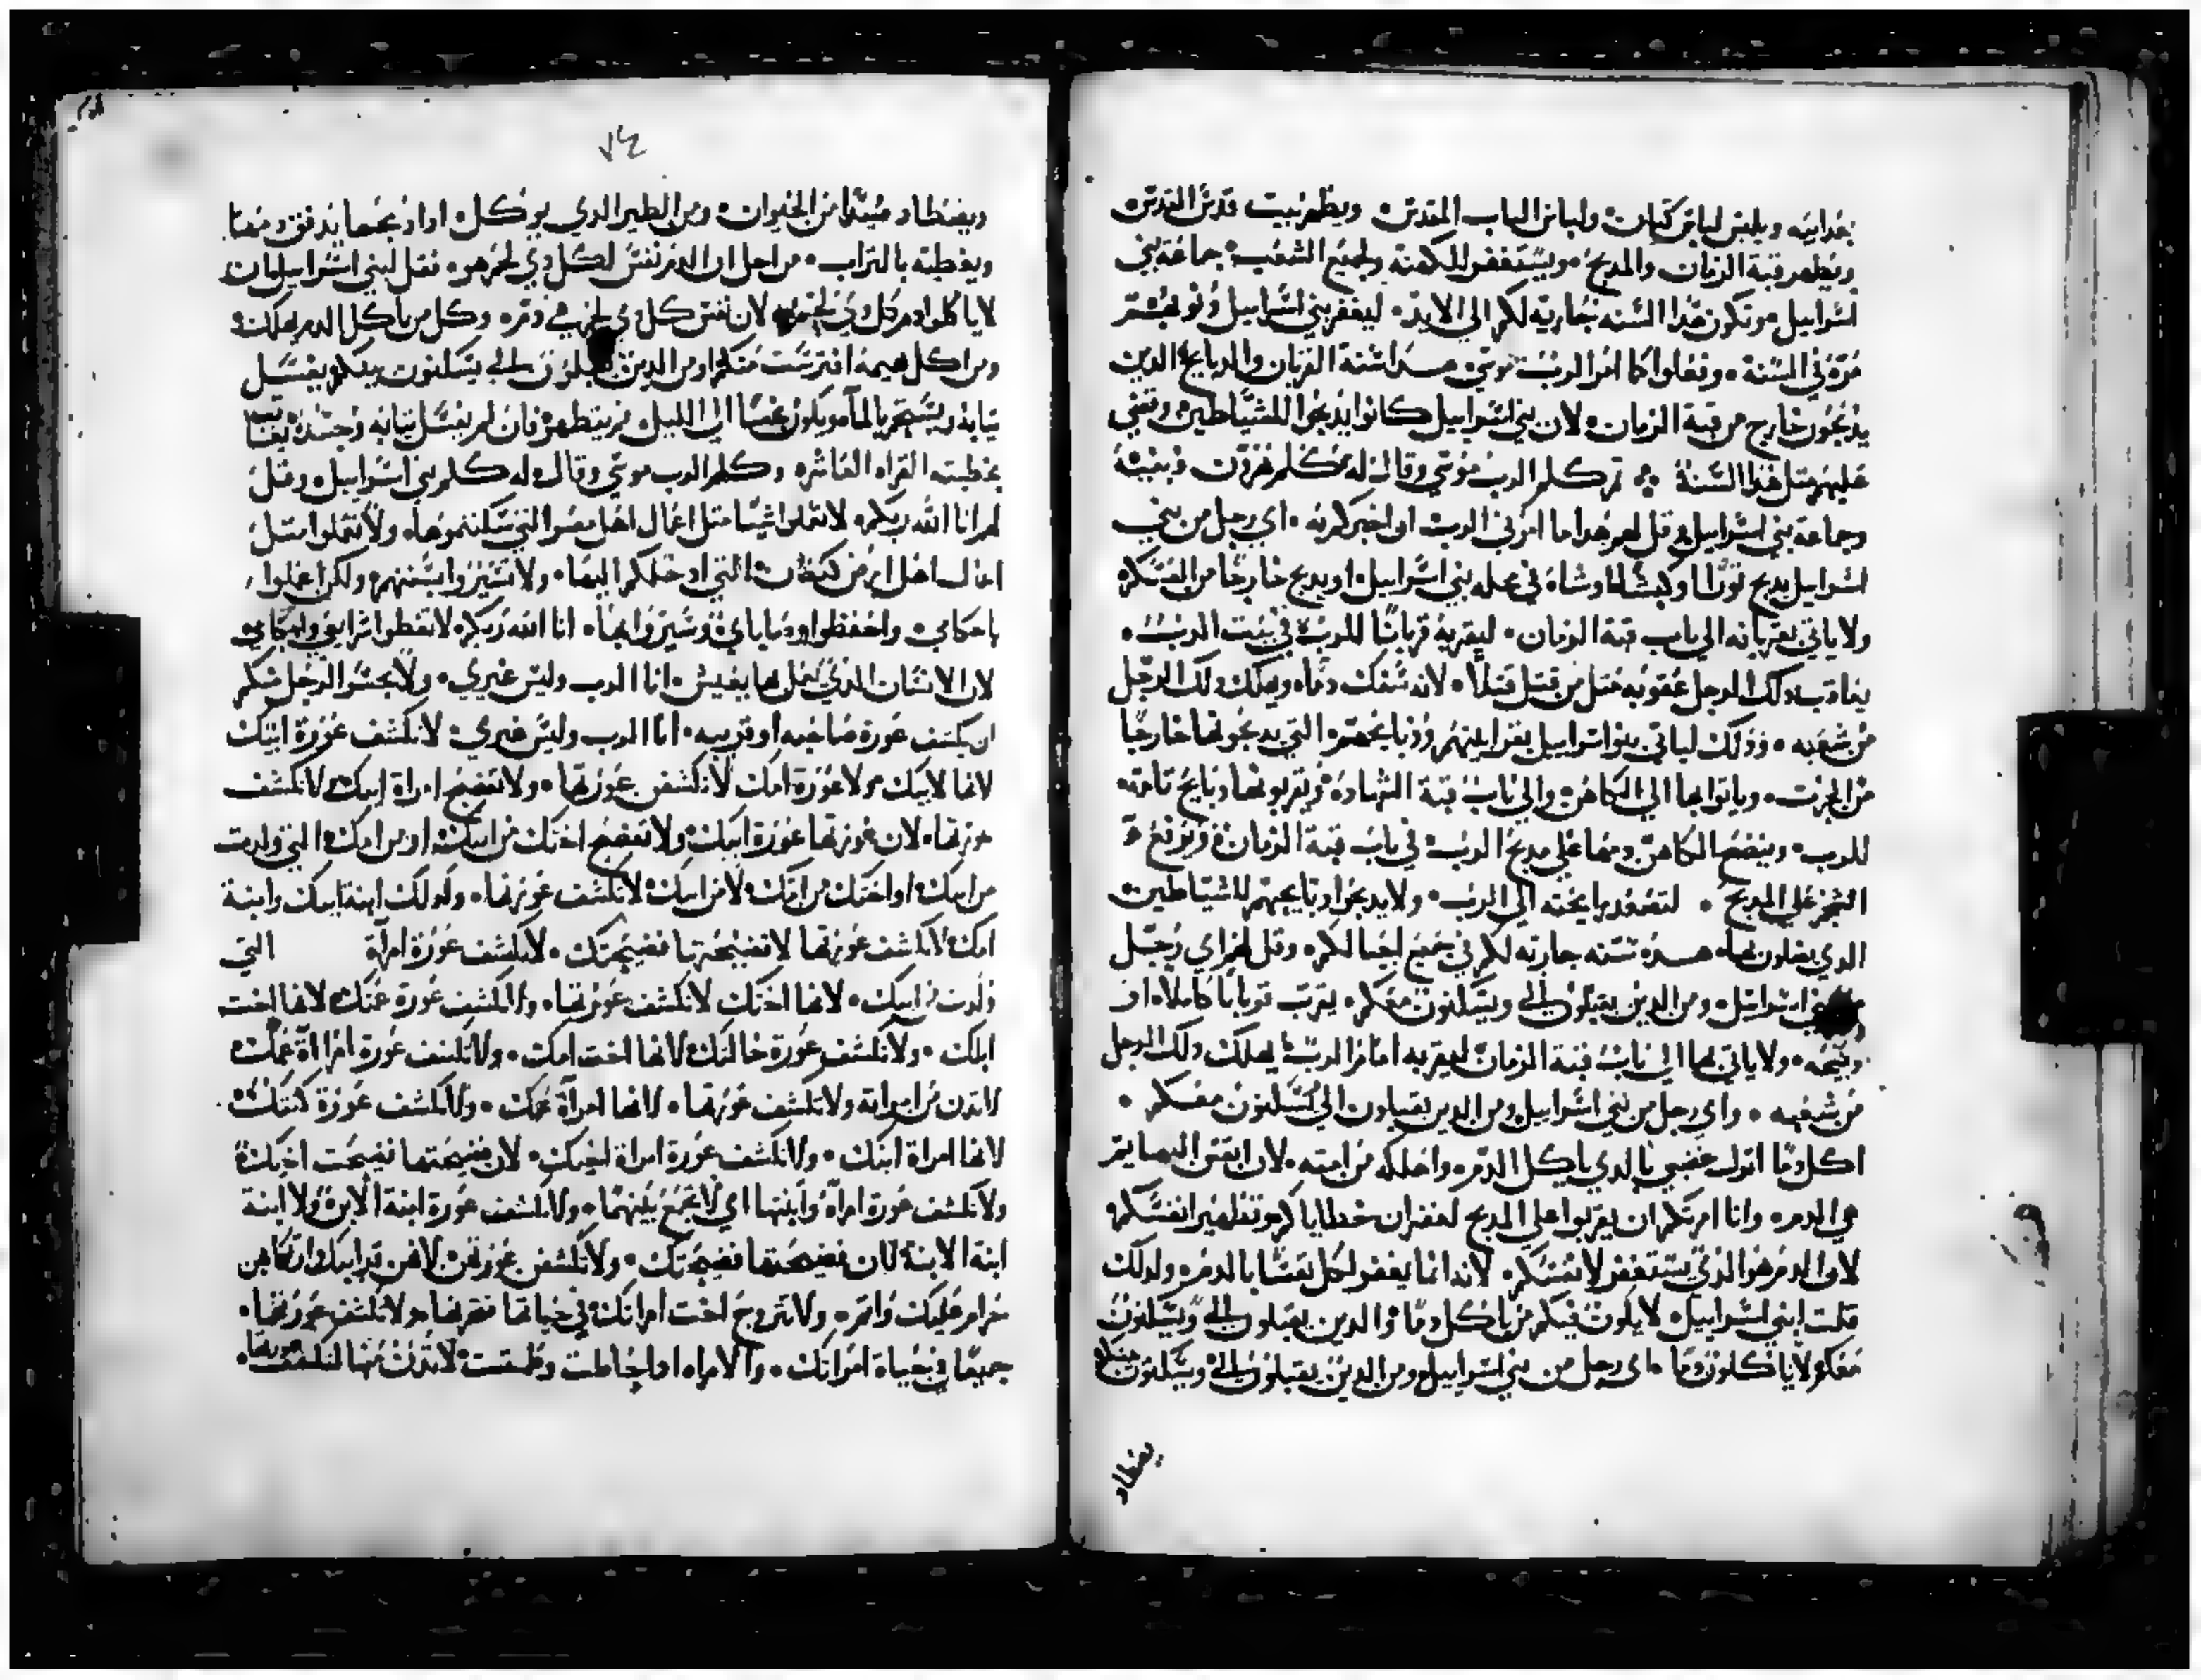 بعد ابيه ويلبس لباس كتان ولباس الباب المقدس ويطهر بيت قدس القدس
ويطهر قبة الزمان والمدبح ويستغفر للكهنة ولجميع الشعب جماعة بني
اسراييل وتكون هدا السنه جاريه لكم الي الابد ليغفر بني اسراييل
مرة في السنة وفعلوا كما امر الرب موسي هده سنة القربان والدبايح الدين
يدبحون خارج من قبة الزمان لان بني اسراييل كانوا يدبحوا للشياطين
عليهم مثل هدا السنة تم كلم الرب موسي وقال له كلم هرون وبنيه
وجماعة بني اسراييل قل لهم هدا ما امرني الرب ان اخبركم به اي رجل من بني
اسراييل يدبح تورا او كبشا او شاة في محله بني اسراييل او يدبح خارجا من العسكر
ولا ياتي بقربانه الي باب قبة الزمان ليقربه قربانا للرب في بيت الرب
يعاقب دلك الرجل عقوبه مثل من قتل قتلا لانه سفك دما ويهلك دلك الرجل
من شعبه ودلك لياتي بنوا اسراييل بقرابينهم ودبايحهم التي يدبحونها خارجا
وياتوا بها الي الكاهن والي باب قبة الشهادة ويقربونها دبايح تامه
للرب وينضح الكاهن دمها علي مدبح الرب في باب قبة الزمان ويرفع
الشحم علي المدبح لتصعد رايحته الي الرب ولا يدبحوا دبايحهم للشياطين
الدي يضلون بها هده سنه جاريه لكم في جميع اجيالكم وقل لهم اي رجل
بني اسراييل ومن الدين يقبلون الي ويسكنون معكم يقرب قربانا كاملا او
دبيحه ولا ياتي بها الي باب قبة الزمان ليقربه امام الرب يهلك دلك الرجل
من شعبه واي رجل من بني اسراييل ومن الدين يقبلون الي يسكنون معكم
اكل دما انزل غضبي بالدي ياكل الدم واهلكه من امته لان انفس البهايم
هي الدم وانا امرتكم ان يقربوا علي المدبح لغفران خطاياكم وتطهير انفسكم
لان الدم هو الدي يستغفر لانفسكم لانه انما يغفر لكل نفسا بالدم ولدلك
قلت لبني اسراييل لا يكون فيكم من ياكل دما والدين يقبلون الي ويسكنون
معكم لا ياكلون دما اي رجل من بني اسراييل ومن الدين يقبلون الي ويسكنون منكم
يصطاد
٧٤
ويصطاد شيئا من الحيوان ومن الطير الدي يوكل ادا دبحها يدفق دمها
ويغطيه بالتراب من اجل ان الدم نفس لكل دي لحم هو فقل لبني اسراييل بان
لا ياكلوا دم كل دي لحم لان نفس كل دي لحم هي دمه وكل من ياكل الدم يهلك
ومن اكل بهيمة افترست منكم او من الدين يقبلون الي يسكنون معكم يغسل
تيابه ويستحم بالما ويكون نجسا الي الليل تم يتطهر فان لم يغسل تيابه وجسده
بخطيته القراه العاشره وكلم الرب موسي وقال له كلم بني اسراييل وقل
لهم انا الله ربكم لا تعملوا شيئا متل اعمال اهل مصر التي سكنتموها ولا تعملوا متل
اعمال اهل ارض كنعان التي ادخلكم اليها ولا تسيروا بسننهم ولكن اعملوا
باحكامي واحفظوا وصاياي وسيروا بها انا الله ربكم لا تعطلوا شرايعي واحكامي
لان الانسان الدي يعمل بها يعيش انا الرب وليس غيري ولا يجسر الرجل منكم
ان يكشف عورة صاحبه او قريبه انا الرب وليس غيري لا تكشف عورة ابيك
لانها لابيك ولا عورة امك لا تكشف عورتها ولا تفضح امراة ابيك لا تكشف
عورتها لان عورتها عورة ابيك ولا تفضح اختك من ابيك او من امك التي ولدت
من ابيك او اختك من امك لا من ابيك لا تكشف عورتها ولدلك ابنة ابيك وابنة
امك لا تكشف عورتها لا تفضحها فضيحتك لا تكشف عورة امراة التي
ولدت من ابيك لانها اختك لا تكشف عورتها ولا تكشف عورة عمتك لانها اخت
ابيك ولا تكشف عورة خالتك لانها اخت امك ولا تكشف عورة امراة عمك
لا تدن من امراته ولا تكشف عورتها لانها امراة عمك ولا تكشف عورة كنتك
لانها امراة ابنك ولا تكشف عورة امراة اخيك لان فضيحتها فضيحت اخيك
ولا تكشف عورة امراة وابنتها اي لا تجمع بينهما ولا تكشف عورة ابنة الابن ولا ابنة
ابنة الابنة لان فضيحتها فضيحتك ولا تكشف عورتهن لانهن قرابيك
حرام عليك واتم ولا تتزوج اخت امراتك في حياتها ولا تكشف عورتها
جميعا في حياة امراتك والامراه ادا حاضت وطمتت لا تدن منها لتكشف عورتها